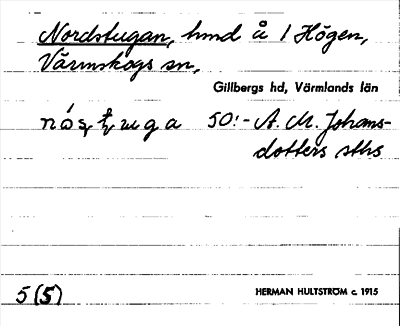 Nordstugan, hmd å 1 Högen,
Värmskogs sn,
Gillbergs hd, Värmlands län
50:- A. M. Johans-
dotters sths
5(5)
HERMAN HULTSTRÖM c. 1915